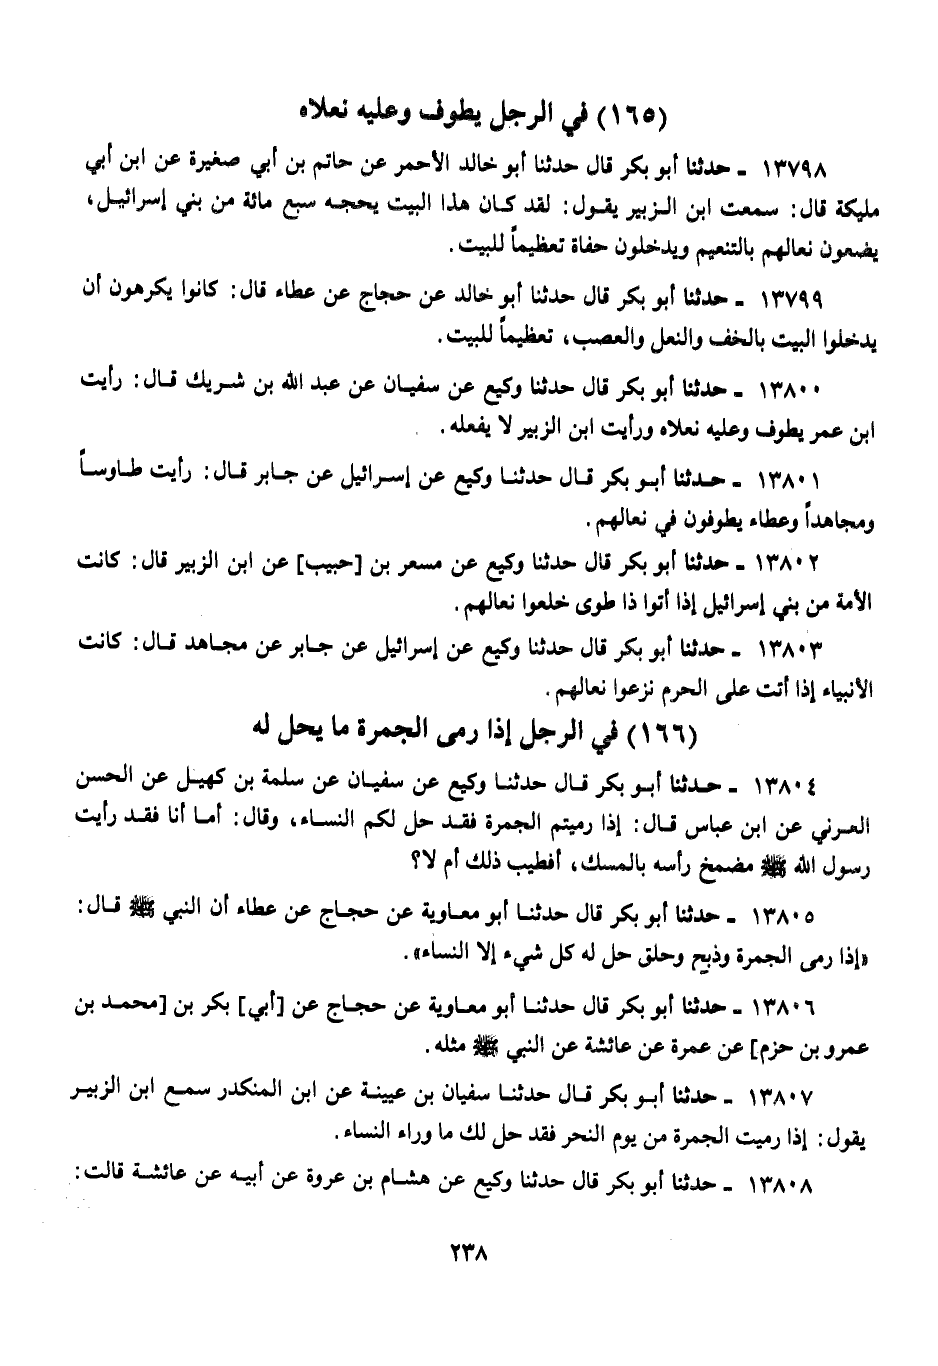 (١٦٥) في الرجل يطوف وعليه نعلاه
١٣٧٩٨ ـ حدثنا أبو بكر قال حدثنا أبو خالد الأحمر عن حاتم بن أبي صغيرة عن ابن أبي
مليكة قال: سمعت ابن الزبير يقول: لقد كان هذا البيت يحجه سبع مائة من بني إسرائيل،
يضعون نعالهم بالتنعيم ويدخلون حفاة تعظيماً للبيت.
١٣٧٩٩ ـ حدثنا أبو بكر قال حدثنا أبو خالد عن حجاج عن عطاء قال: كانوا يكرهون أن
يدخلوا البيت بالخف والنعل والعصب، تعظيماً للبيت.
١٣٨٠٠ ـ حدثنا أبو بكر قال حدثنا وكيع عن سفيان عن عبد الله بن شريك قال: رأيت
ابن عمر يطوف وعليه نعلاه ورأيت ابن الزبير لا يفعله.
١٣٨٠١ ـ حدثنا أبو بكر قال حدثنا وكيع عن إسرائيل عن جابر قال: رأيت طاوساً
ومجاهداً وعطاء يطوفون في نعالهم.
١٣٨٠٢ ـ حدثنا أبو بكر قال حدثنا وكيع عن مسعر بن [حبيب] عن ابن الزبير قال: كانت
الأمة من بني إسرائيل إذا أتوا ذا طوى خلعوا نعالهم.
١٣٨٠٣ ـ حدثنا أبو بكر قال حدثنا وكيع عن إسرائيل عن جابر عن مجاهد قال: كانت
الأنبياء إذا أتت على الحرم نزعوا نعالهم.
(١٦٦) في الرجل إذا رمى الجمرة ما يحل له
١٣٨٠٤ ـ حدثنا أبو بكر قال حدثنا وكيع عن سفيان عن سلمة بن كهيل عن الحسن
العرني عن ابن عباس قال: إذا رميتم الجمرة فقد حل لكم النساء، وقال: أما أنا فقد رأيت
رسول الله ﷺ مضمخ رأسه بالمسك، أفطيب ذلك أم لا؟
١٣٨٠٥ ـ حدثنا أبو بكر قال حدثنا أبو معاوية عن حجاج عن عطاء أن النبي ﷺ قال:
«إذا رمى الجمرة وذبح وحلق حل له كل شيء إلا النساء».
١٣٨٠٦ ـ حدثنا أبو بكر قال حدثنا أبو معاوية عن حجاج عن [أبي] بكر بن [محمد بن
عمرو بن حزم] عن عمرة عن عائشة عن النبي ﷺ مثله.
١٣٨٠٧ ـ حدثنا أبو بكر قال حدثنا سفيان بن عيينة عن ابن المنكدر سمع ابن الزبير
يقول: إذا رميت الجمرة من يوم النحر فقد حل لك ما وراء النساء.
١٣٨٠٨ ـ حدثنا أبو بكر قال حدثنا وكيع عن هشام بن عروة عن أبيه عن عائشة قالت:
٢٣٨